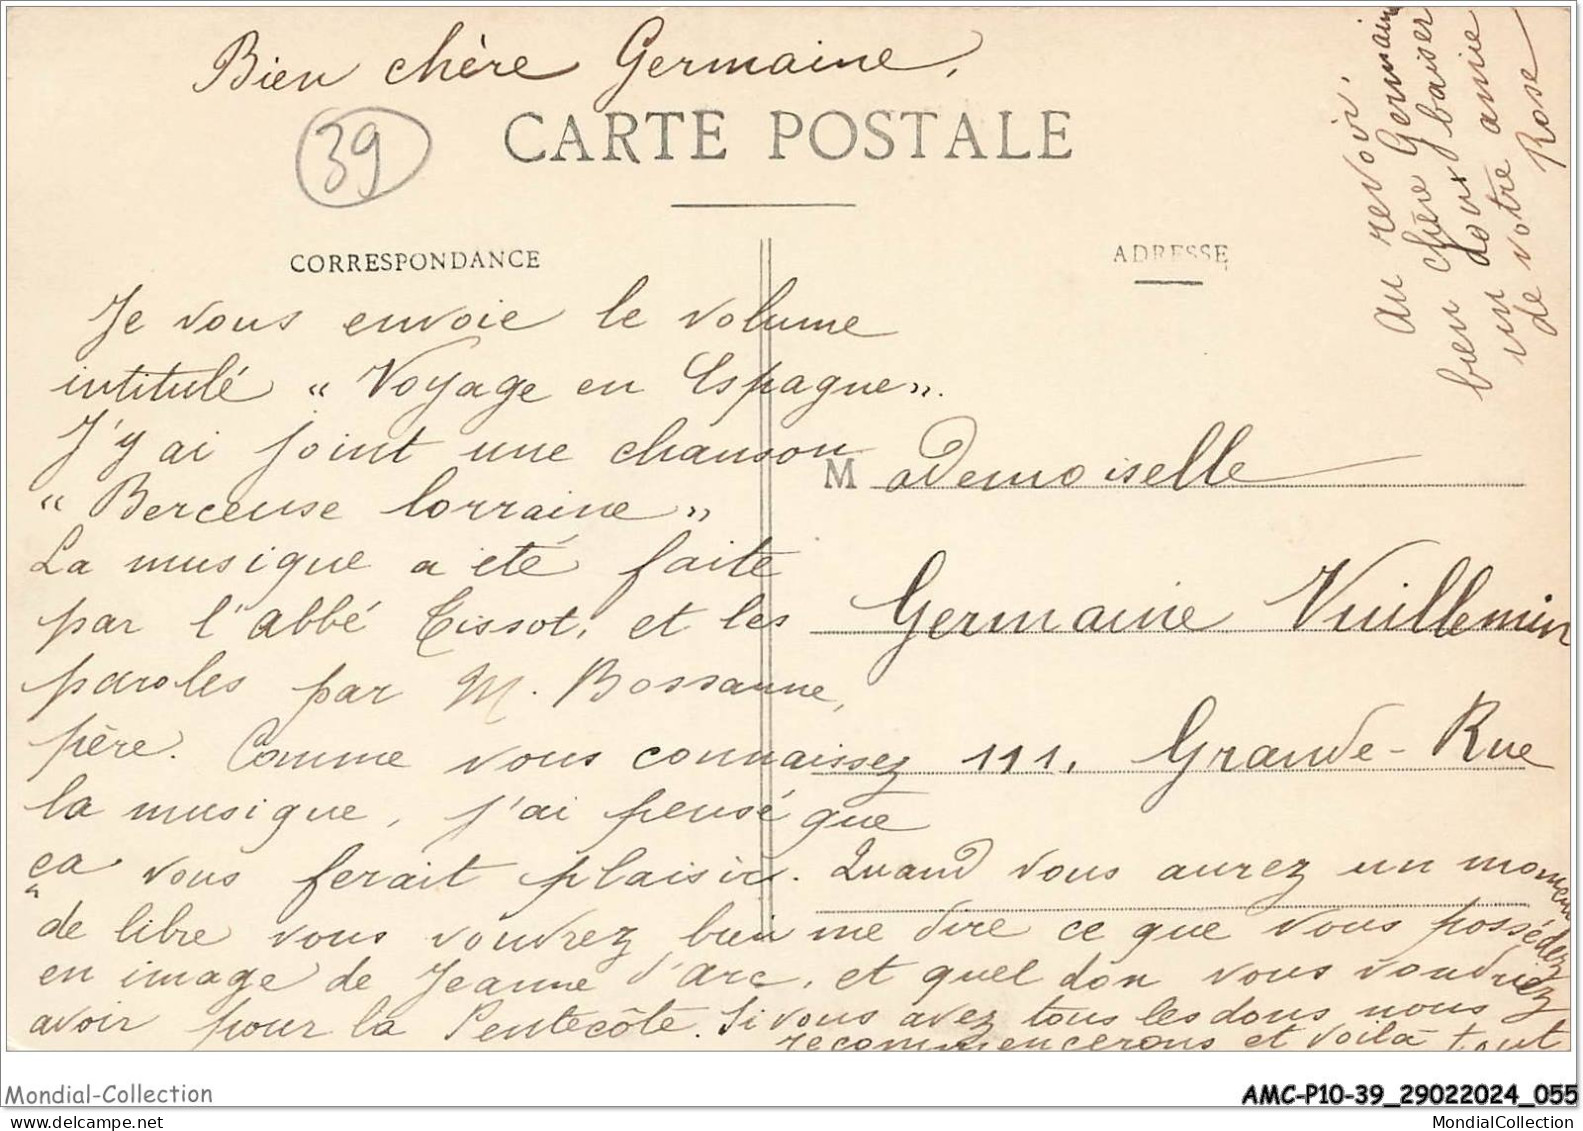 Bien chère Germaine,
39
CARTE POSTALE
CORRESPONDANCE
ADRESSE
Je vous envoie le volume
intitulé « Voyage en Espagne ».
J'y ai joint une chanson
« Berceuse lorraine »
La musique a été faite
par l'abbé Tissot, et les
paroles par M. Bossanne,
père. Comme vous connaissez
la musique, j'ai pensé que
ça vous ferait plaisir. Quand vous aurez un moment
de libre vous voudrez bien me dire ce que vous possédez
en image de Jeanne d'arc, et quel don vous voudriez
avoir pour la Pentecôte. Si vous avez tous les dons nous
recommencerons et voilà tout
Mademoiselle
Germaine Vuillemin
111, Grande-Rue
Au revoir,
bien chère Germaine
un doux baiser
de votre amie
Rose
Mondial-Collection
AMC-P10-39_29022024_055
delcampe.net
MondialCollection